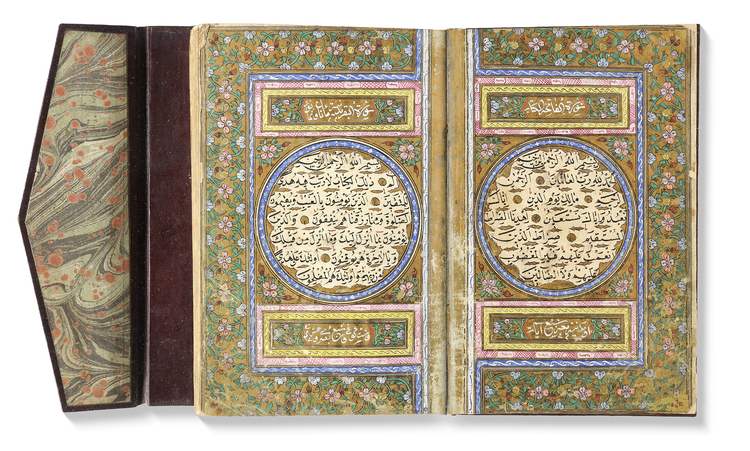 سورة الفاتحة الكتاب
بسم الله الرحمن الرحيم
الحمد لله رب العالمين الرحمن
الرحيم مالك يوم الدين اياك
نعبد واياك نستعين اهدنا الصراط
المستقيم صراط الذين
انعمت عليهم غير المغضوب
عليهم ولا الضالين
سبع ايات
سورة البقرة مائتان
بسم الله الرحمن الرحيم
الم ذلك الكتاب لا ريب فيه هدى
للمتقين الذين يؤمنون بالغيب ويقيمون
الصلوة ومما رزقناهم ينفقون والذين
يؤمنون بما انزل اليك وما انزل من قبلك
وبالاخرة هم يوقنون اولئك على هدى
من ربهم واولئك هم المفلحون